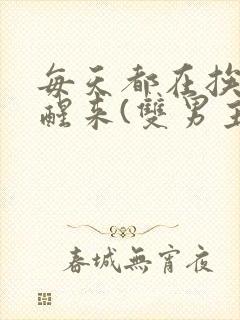 每天都在挨
醒来(雙男主
春城無宵夜